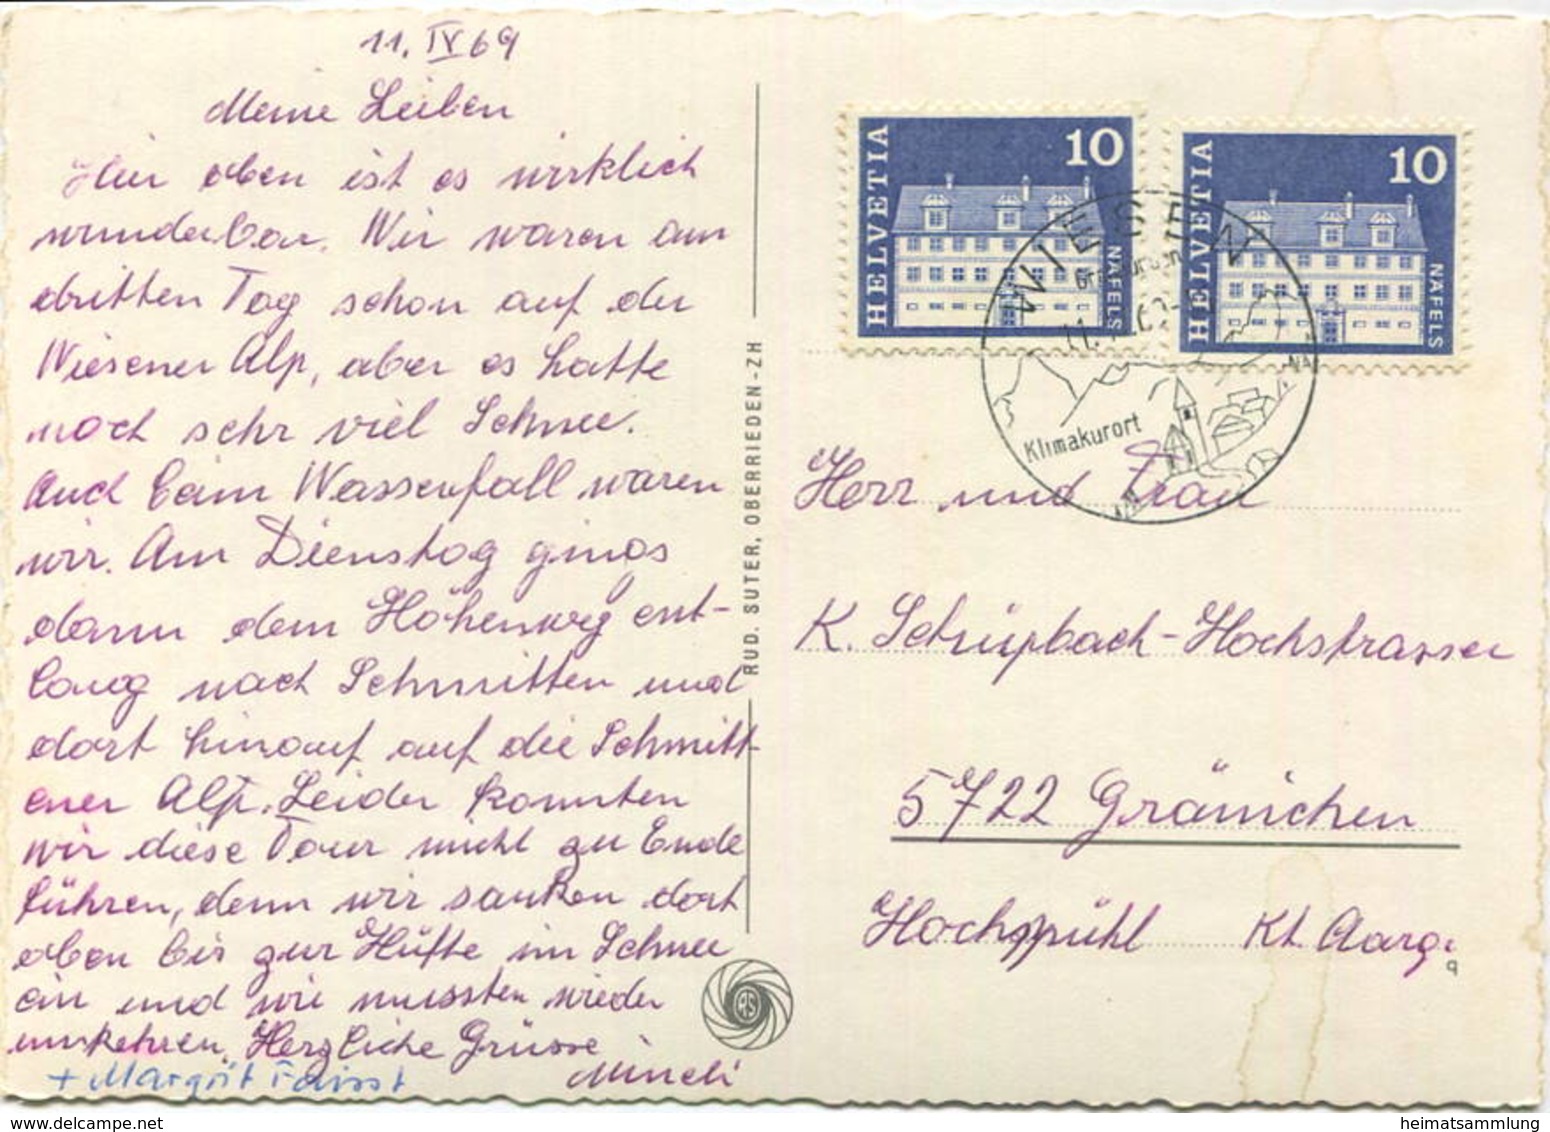 11. IV 69
Meine Lieben
Hier oben ist es wirklich
wunderbar. Wir waren am
dritten Tag schon auf der
Wiesener Alp, aber es hatte
noch sehr viel Schnee.
Auch beim Wasserfall waren
wir. Am Dienstag gings
dann dem Höhenweg ent-
lang nach Schmitten und
dort hinauf auf die Schmitt-
ener Alp. Leider konnten
wir diese Tour nicht zu Ende
führen, denn wir sanken dort
oben bis zur Hüfte im Schnee
ein und wir mussten wieder
umkehren. Herzliche Grüsse
+ Margrit Faisst
RUD. SUTER, OBERRIEDEN-ZH
RS
HELVETIA 10 NÄFELS
HELVETIA 10 NÄFELS
WIESEN
Graubünden
Klimakurort
Herr und Frau
K. Schüpbach-Hochstrasser
5722 Gränichen
Hochspühl Kt. Aarg.
9
delcampe.net
heimatsammlung